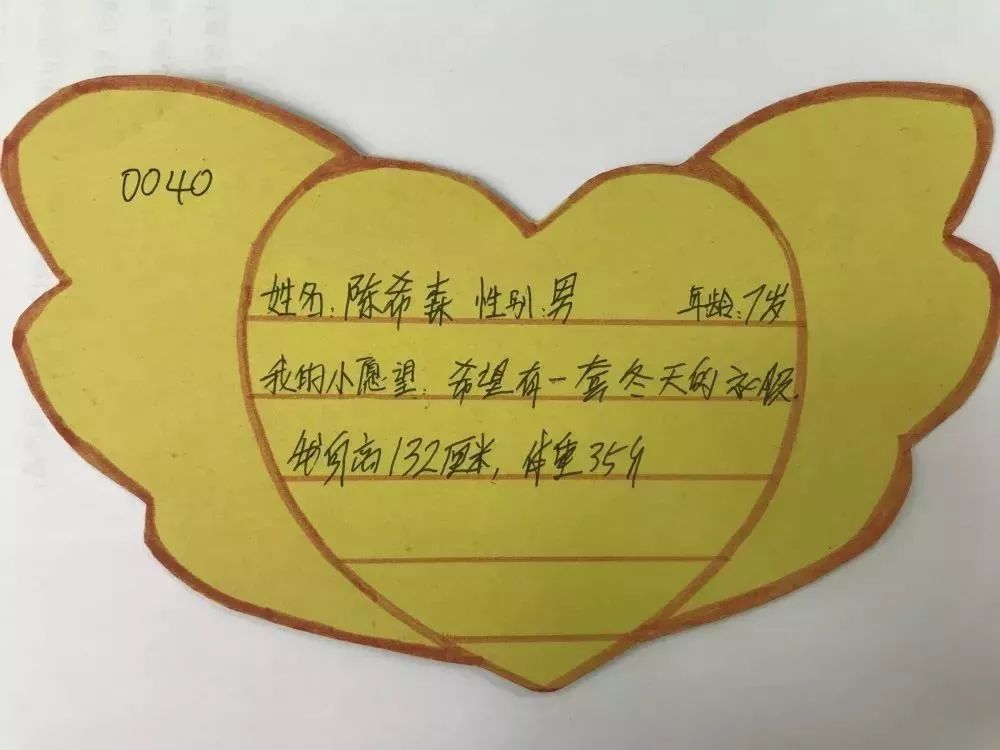 0040
姓名:陈希森 性别:男 年龄:7岁
我的小愿望:希望有一套冬天的衣服.
我身高132厘米,体重35斤